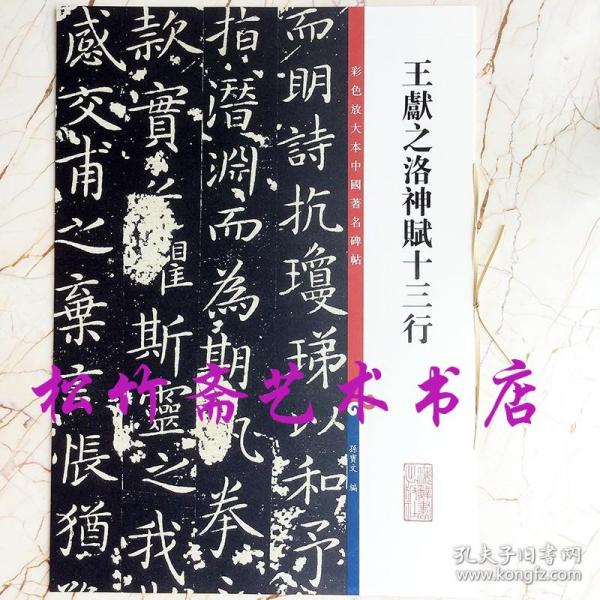 王獻之洛神賦十三行
彩色放大本中國著名碑帖
孫寶文 編
而明詩抗瓊珶以和予
指潛淵而為期執拳
款實 懼斯靈之我
感交甫之棄言悵猶
松竹斋艺术书店
孔夫子旧书网
www.kongfz.com